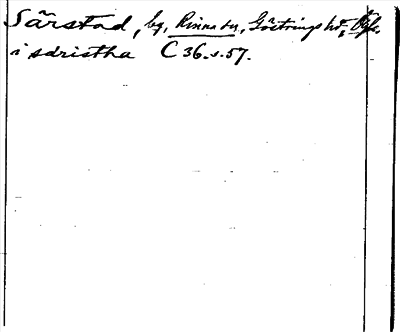 Särstad, by, Rinna sn, Göstrings hd, Ögl.
i sdristha C 36 s. 57.